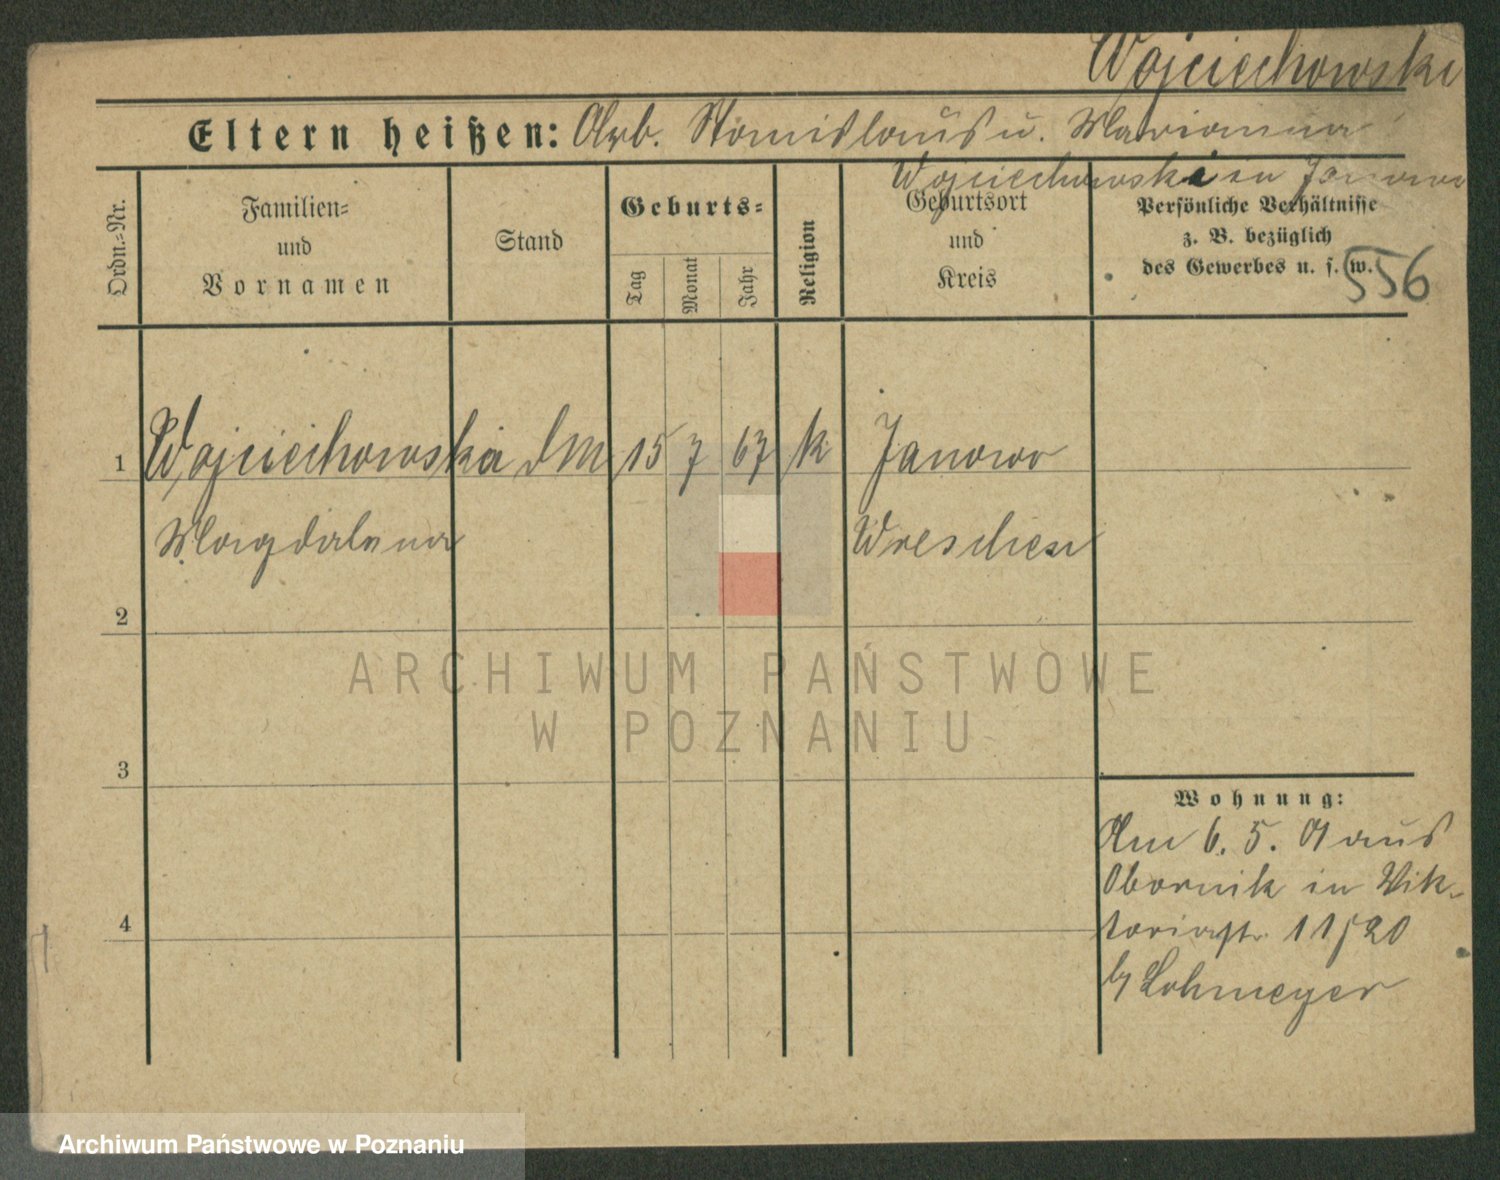 Wojciechowski
Eltern heißen: Arb. Stanislaus u. Marianna
Wojciechowski in Janowo
Ordn.=Nr.
Familien=
und
Vornamen
Stand
Geburts=
Tag
Monat
Jahr
Religion
Geburtsort
und
Kreis
Persönliche Verhältnisse
z. B. bezüglich
des Gewerbes u. s. w.
556
1 Wojciechowska DM 15 7 67 k Janowo
Magdalena Wreschen
2
3
4
Wohnung:
Am 6. 5. 01 aus
Obornik in Vik-
toriastr. 11/20
b/ Lohmeyer
ARCHIWUM PAŃSTWOWE
W POZNANIU
Archiwum Państwowe w Poznaniu